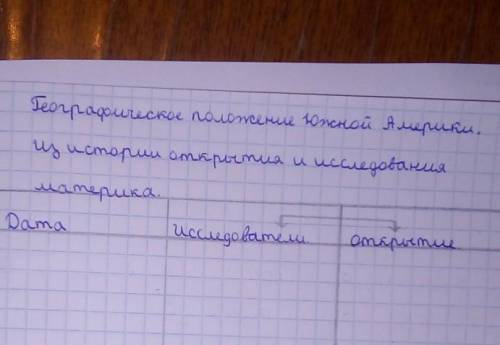 Географическое положение Южной Америки.
Из истории открытия и исследования
материка.
Дата исследователи открытие